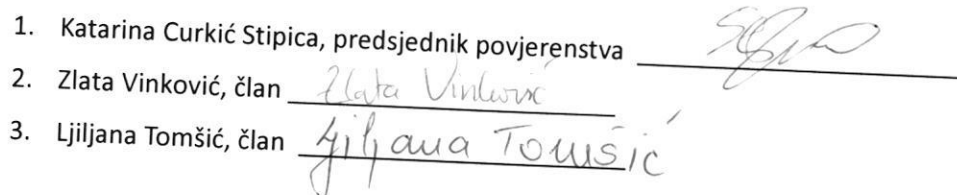 1. Katarina Curkić Stipica, predsjednik povjerenstva
2. Zlata Vinković, član Zlata Vinković
3. Ljiljana Tomšić, član Ljiljana Tomšić